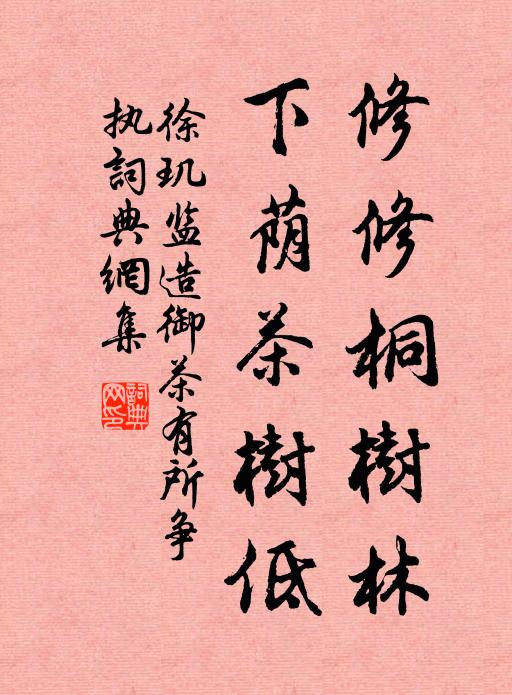 修修桐樹林
下荫茶樹低
徐玑监造御茶有所争
执詞典網集
詞典网印